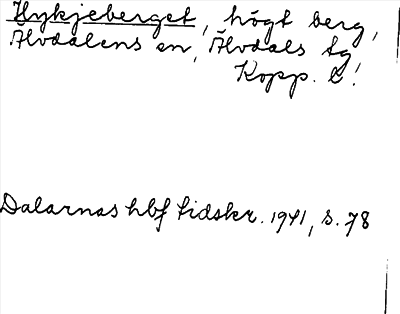 Hykjeberget, högt berg,
Älvdalens sn, Älvdals tg
Kopp. l!
Dalarnas hbf tidskr. 1941, s. 78